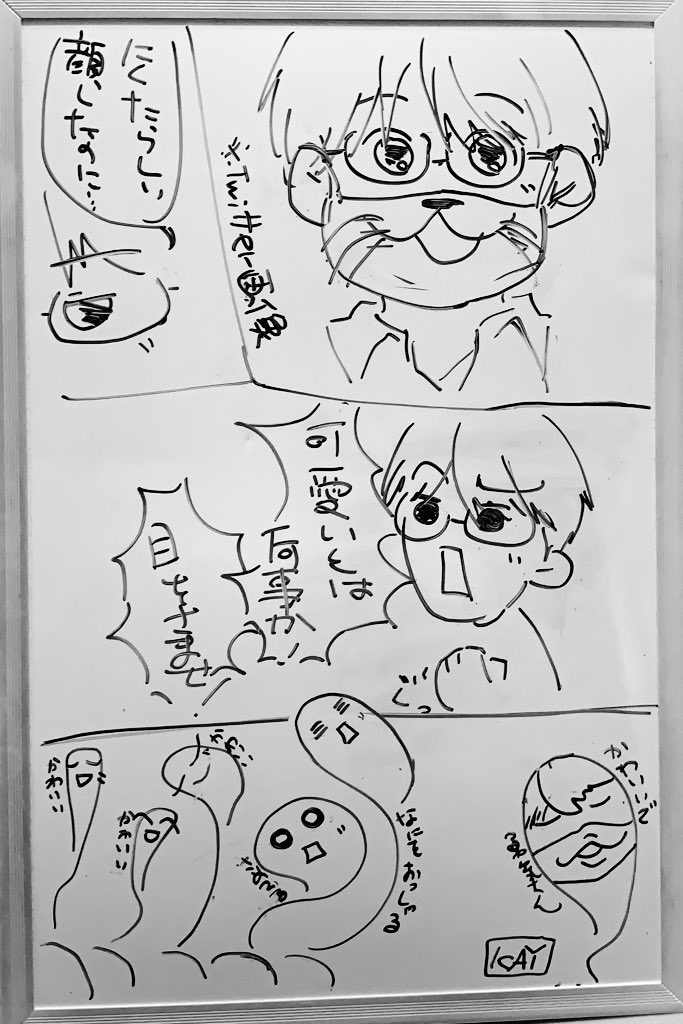 ※Twitter画像
にくたらしい
顔したのに…
可愛いとは
何事か!
目をさませ
ぐっ
かわいい
かわいい
なにをおっしゃる
かわいいで
KAY